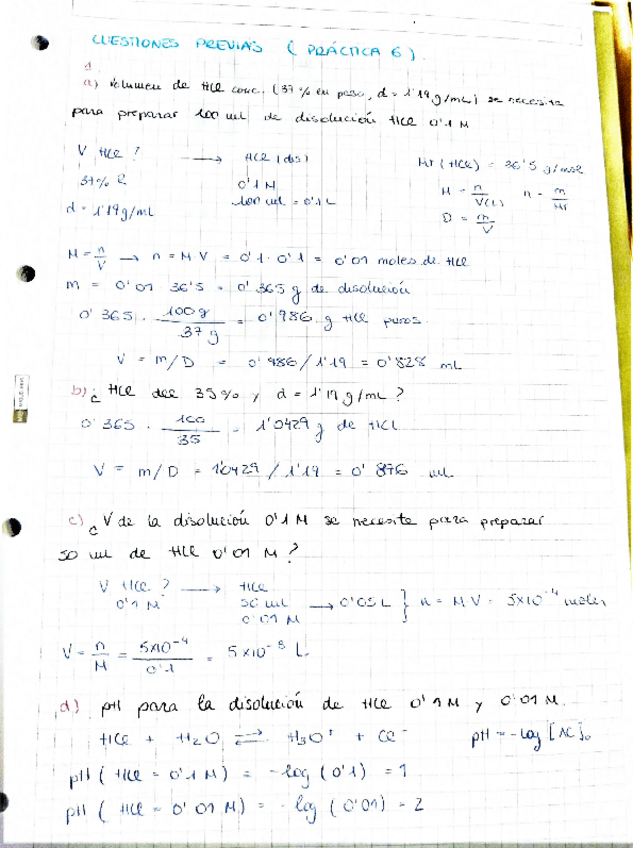 CUESTIONES PREVIAS ( PRÁCTICA 6 ).
1.
a) Volumen de HCl conc. (37 % en peso, d = 1'19 g/mL) se necesita
para preparar 100 ml de disolución HCl 0'1 M
V HCl ? → HCl (dis) Mr (HCl) = 36'5 g/mol
37% R 0'1 M M = n/V(L) n = m/Mr
d = 1'19 g/mL 100 ml = 0'1 L D = m/V
M = n/V → n = M V = 0'1 · 0'1 = 0'01 moles de HCl
m = 0'01 · 36'5 = 0'365 g de disolución
0'365 · 100 g / 37 g = 0'986 g HCl puros.
V = m/D = 0'986 / 1'19 = 0'828 mL
b) ¿ HCl del 35% y d = 1'19 g/mL ?
0'365 · 100/35 = 1'0429 g de HCl
V = m/D = 1'0429 / 1'19 = 0'876 ml
c) ¿ V de la disolución 0'1 M se necesita para preparar
50 ml de HCl 0'01 M ?
V HCl ? → HCl
0'1 M 50 ml → 0'05 L } n = M V = 5x10⁻⁴ moles
0'01 M
V = n/M = 5x10⁻⁴ / 0'1 = 5x10⁻³ L
d) pH para la disolución de HCl 0'1 M y 0'01 M.
HCl + H₂O ⇄ H₃O⁺ + Cl⁻ pH = -log [AC]₀
pH ( HCl = 0'1 M ) = -log ( 0'1 ) = 1
pH ( HCl = 0'01 M ) = -log ( 0'01 ) = 2